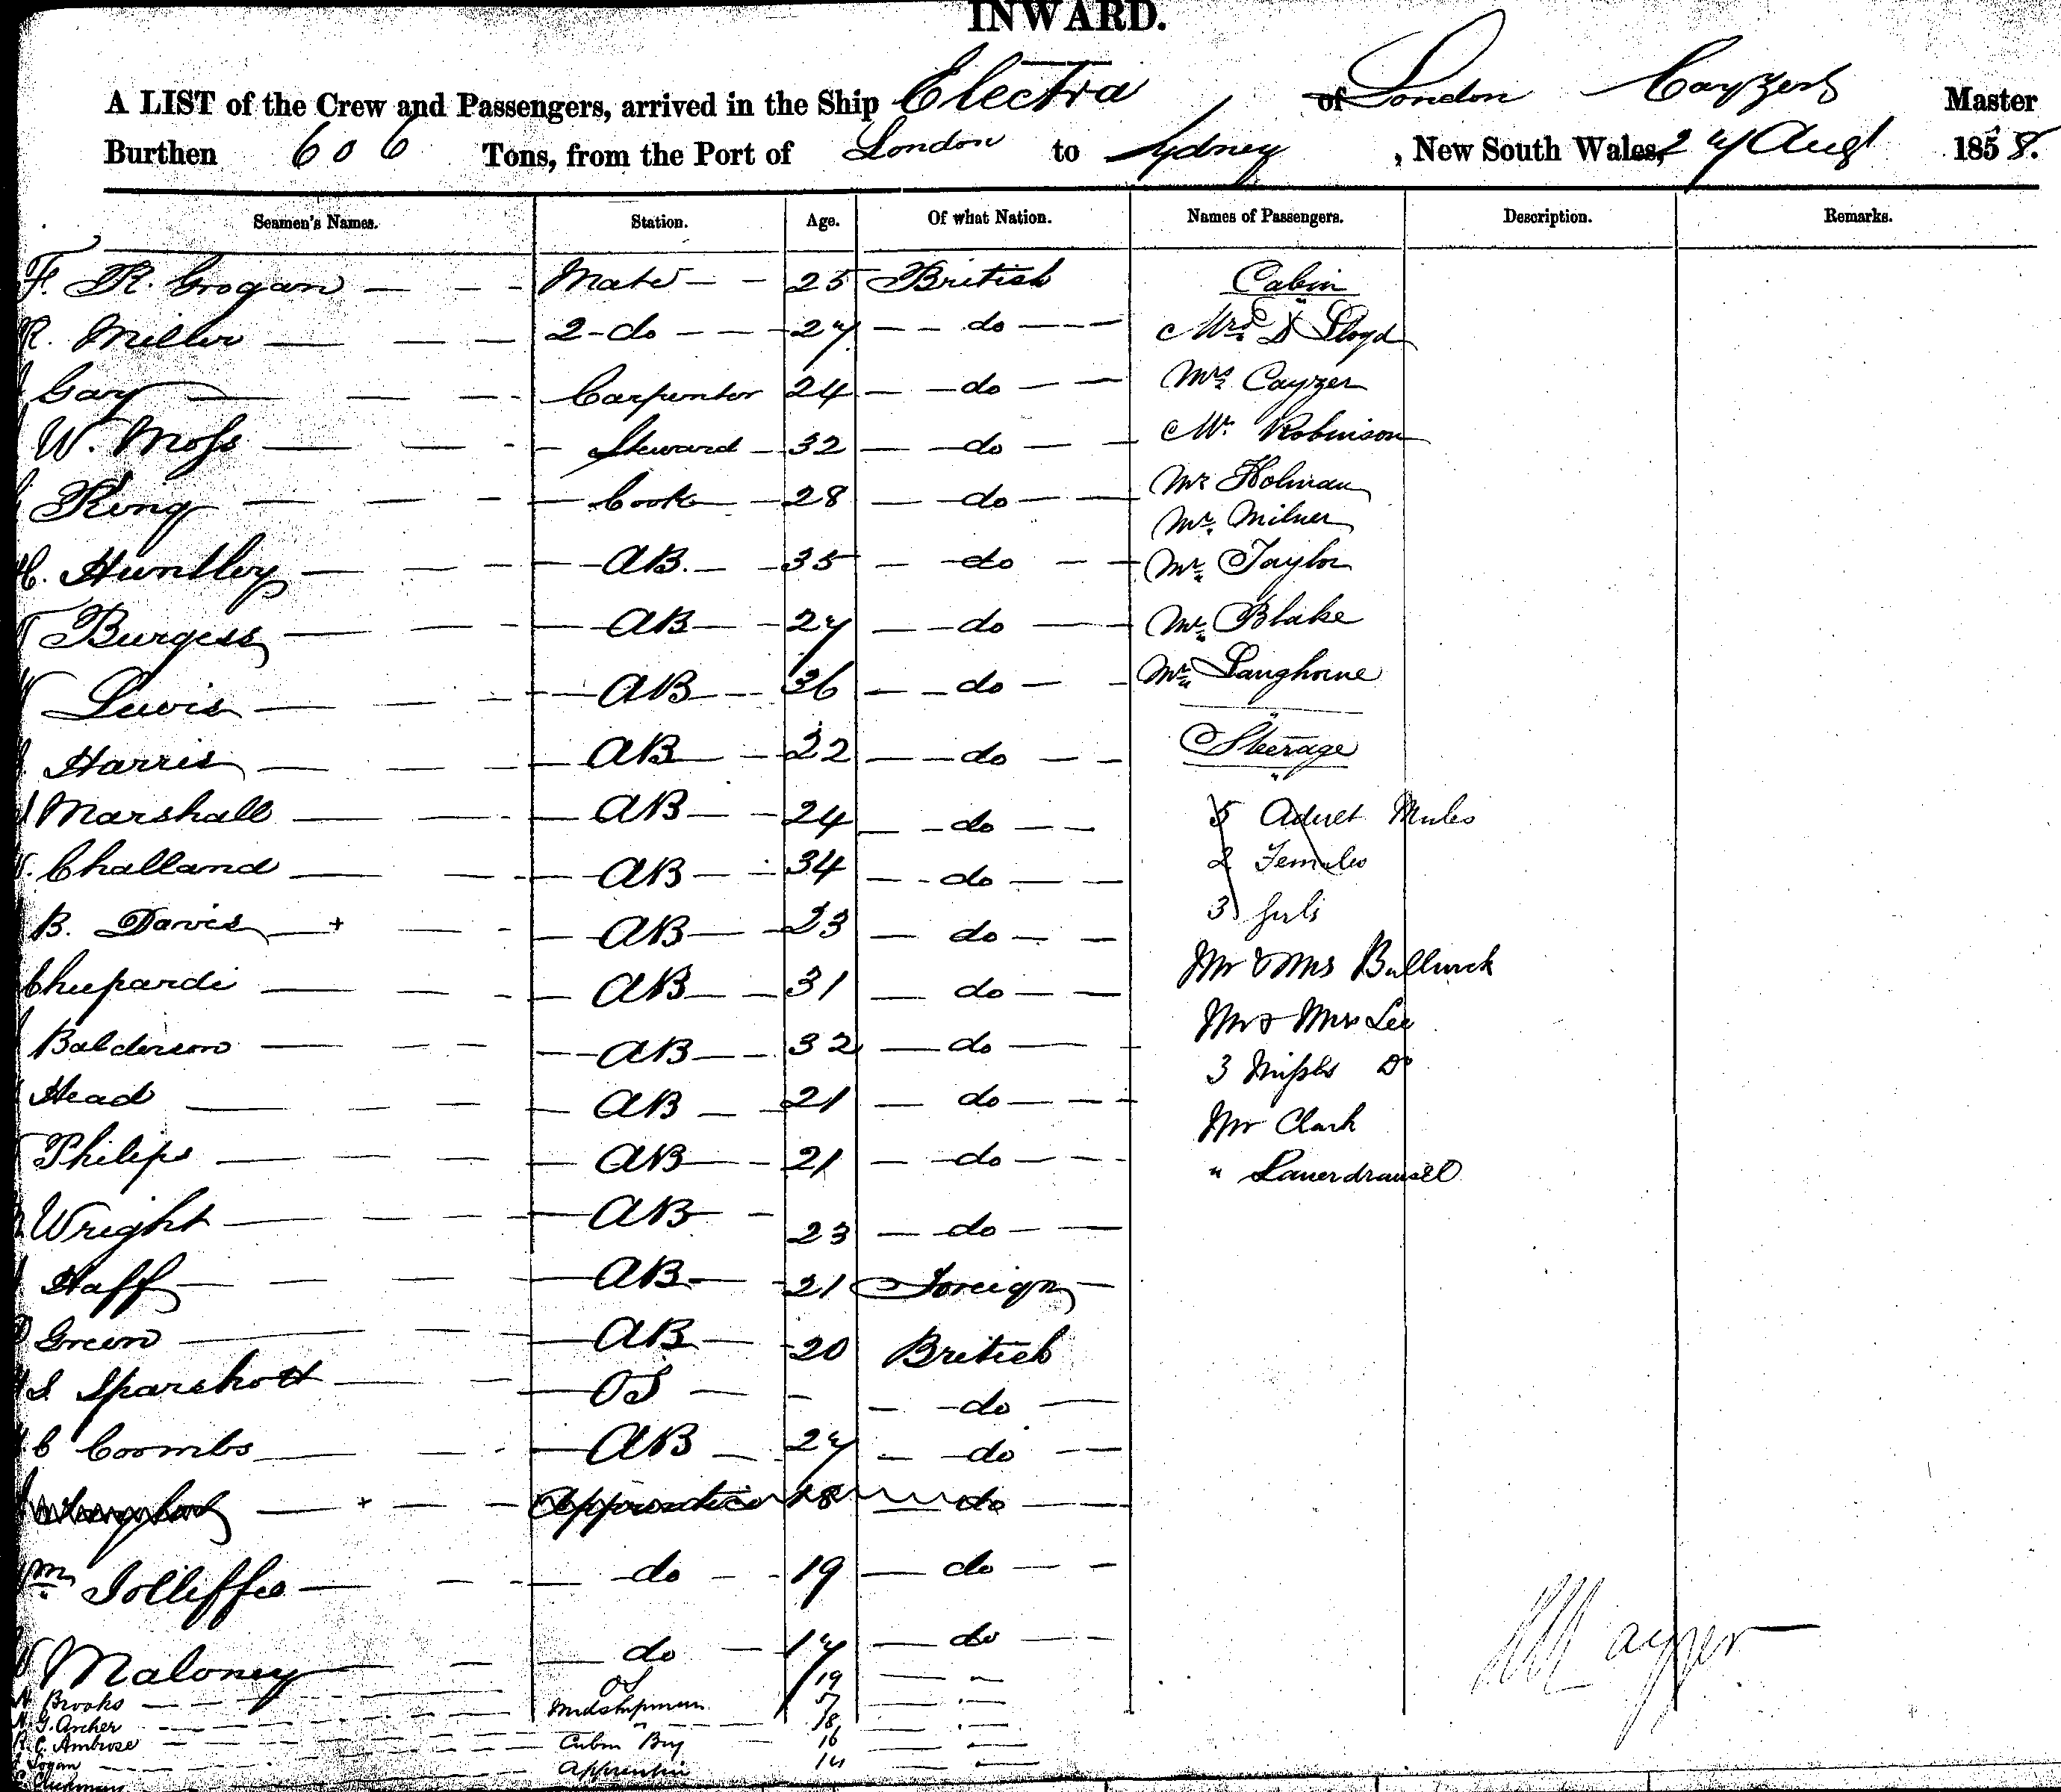 INWARD.
A LIST of the Crew and Passengers, arrived in the Ship Electra of London Cayzer Master
Burthen 606 Tons, from the Port of London to Sydney, New South Wales, 27 Augt 1858.
Seamen's Names. Station. Age. Of what Nation. Names of Passengers. Description. Remarks.
F. R. Grogan Mate 25 British Cabin
R. Miller 2 do 27 do Mrs D Lloyd
Gay Carpenter 24 do Mrs Cayzer
W. Moss Steward 32 do Mr Robinson
King Cook 28 do Mr Holman
Mr Milner
H. Huntley AB. 35 do Mr Taylor
Burgess AB 27 do Mr Blake
Lewis AB 36 do Mr Langhorne
Harris AB 22 do Steerage
Marshall AB 24 do 5 Adult Males
Challand AB 34 do 2 Females
B. Davis + AB 23 do 3 Girls
Chepardi AB 31 do Mr & Mrs Bullwick
Balderson AB 32 do Mr & Mrs Lee
Head AB 21 do 3 Misses Do
Philips AB 21 do Mr Clark
Wright AB 23 do "
Haff AB 21 Foreign
Green AB 20 British
S. Sparshott OS - do
C Coombs AB 27 do
+ Apprentice 18 do
Wm Jolliffe do 19 do
W Maloney do 17 do
Brooks OS 19
G. Archer Midshipman
R. C. Ambrose " 18
Logan Cabin Boy 16
Apprentice 14
Cayzer